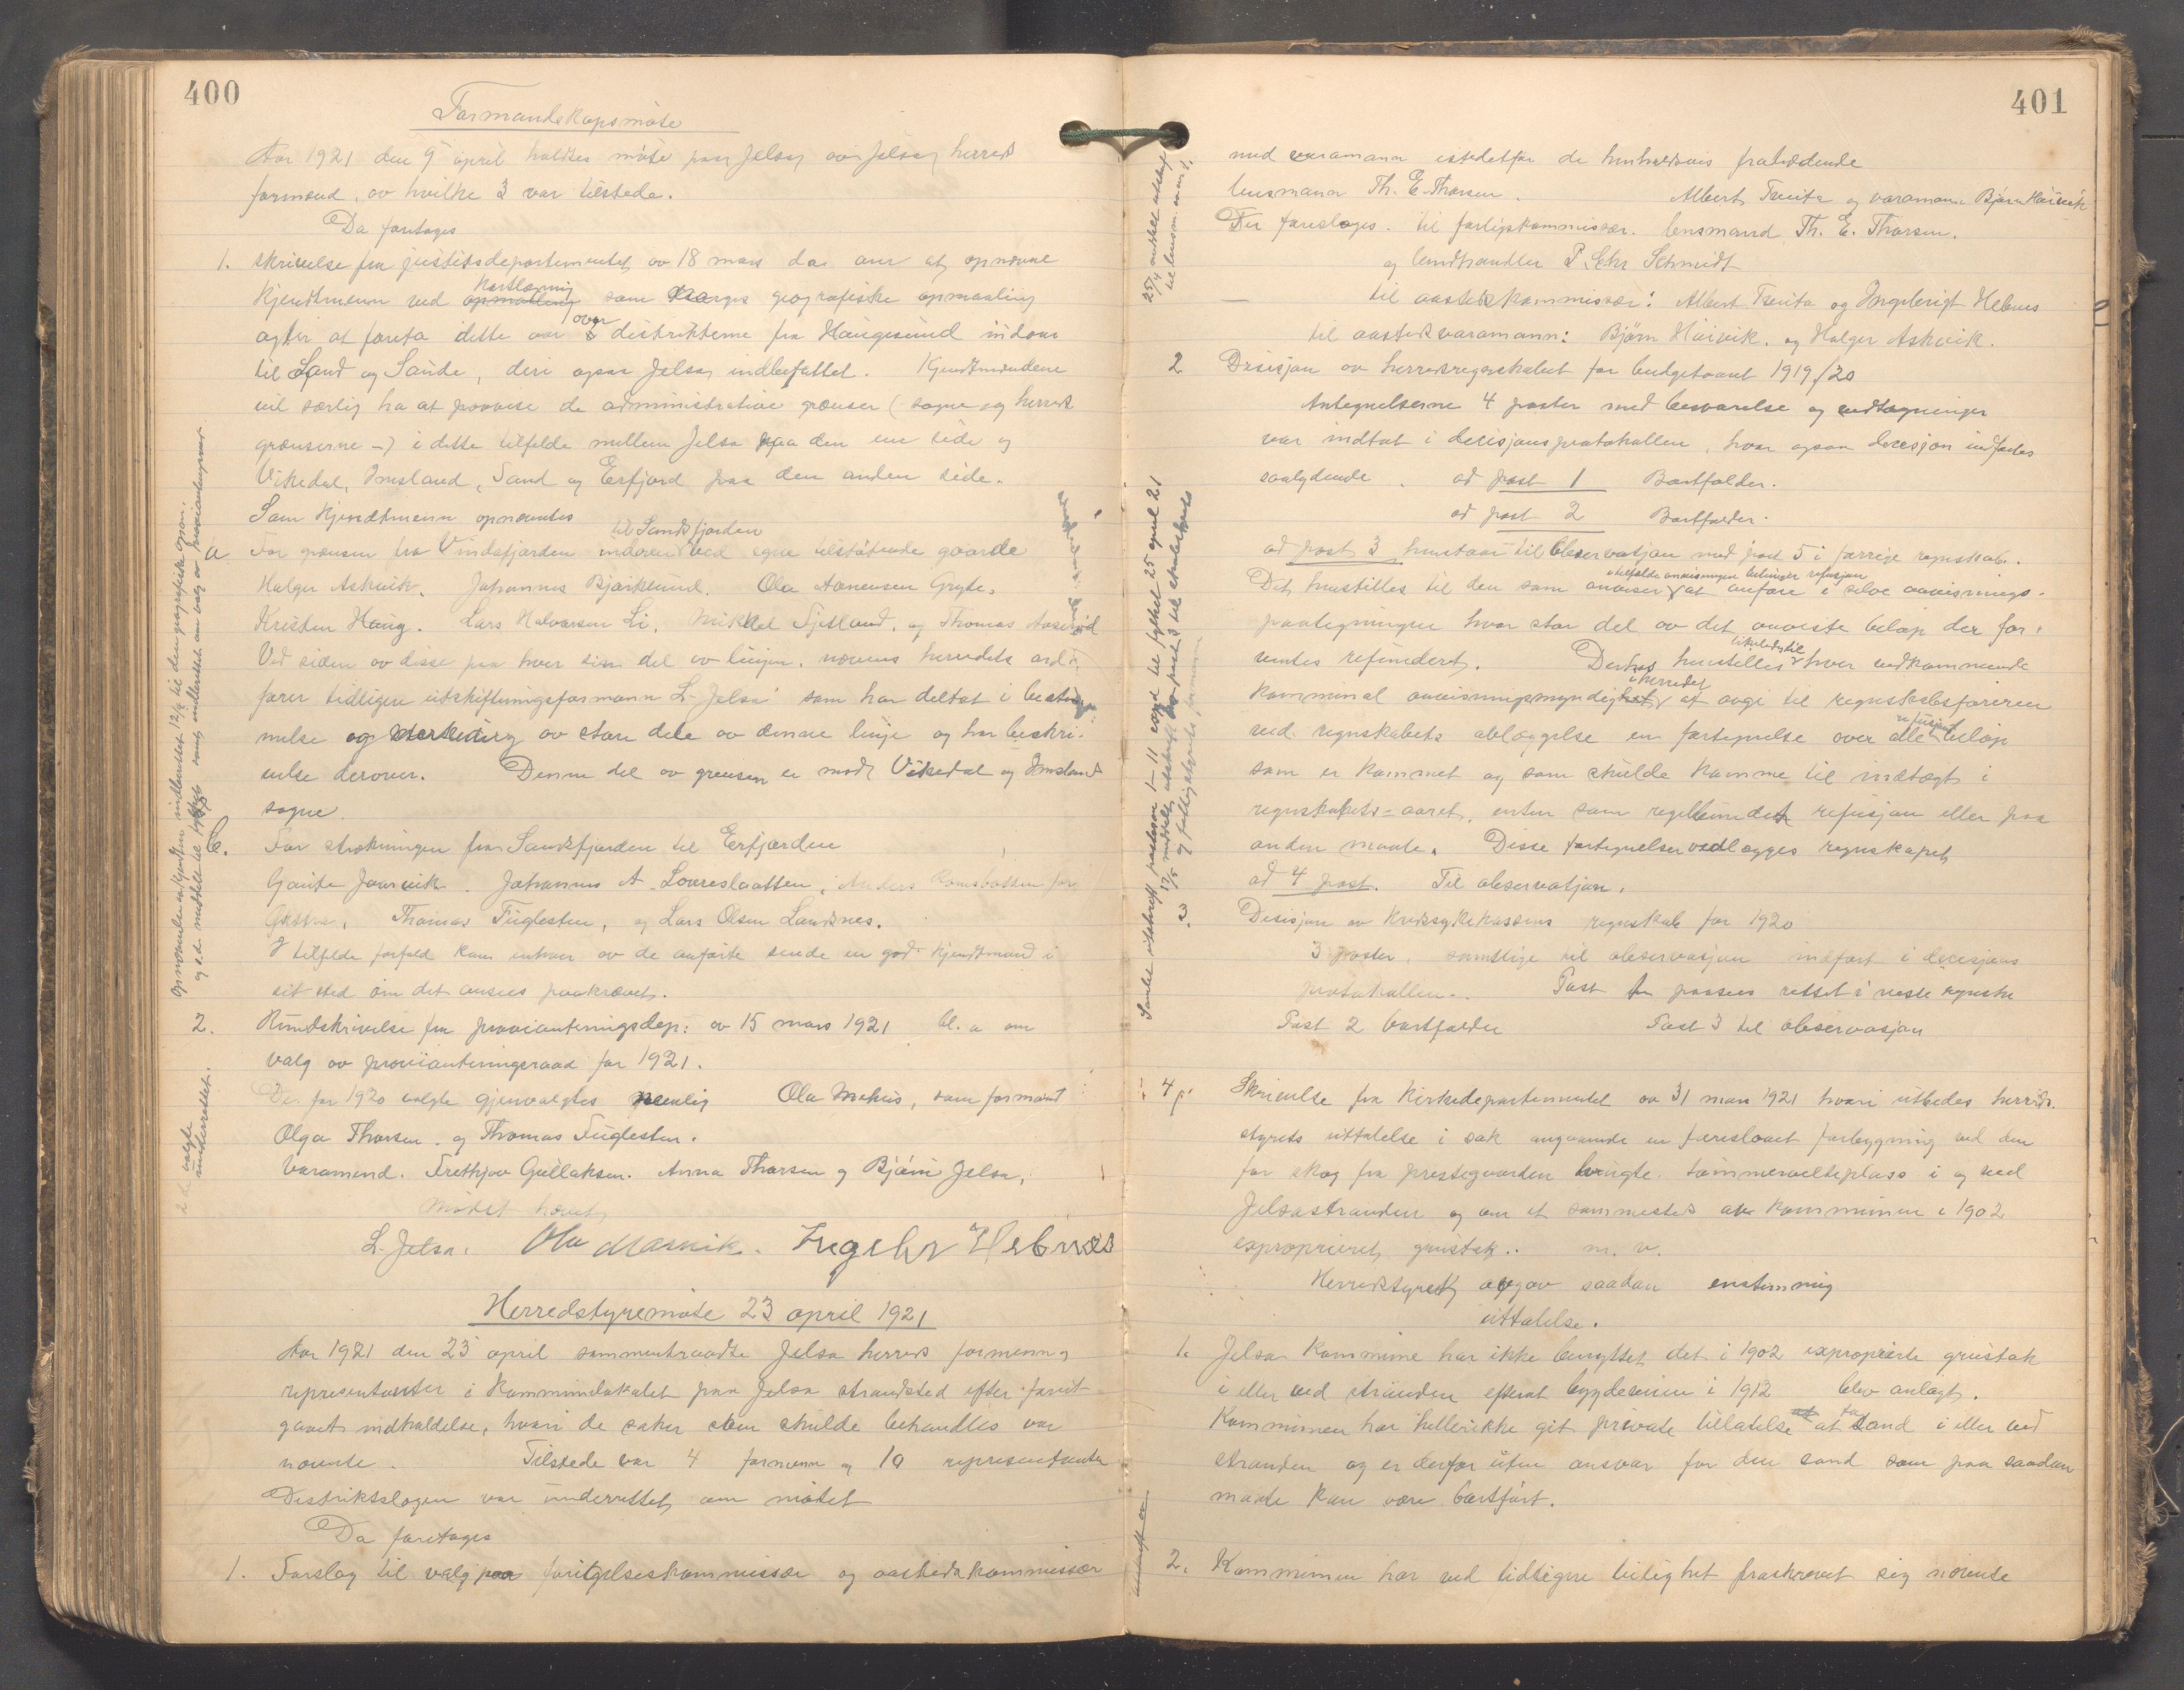 400
Formandskapsmøte
Aar 1921 den 9 april holdtes møte paa Jelsa av Jelsa herreds
formænd, av hvilke 3 var tilstede.
Da foretages
1. Skrivelse fra justitsdepartementet av 18 mars d.a. om at opnævne
kjendtmenn ved kartlægning som Norges geografiske opmaaling
agter at foreta dette aar over distrikterne fra Haugesund indover
til Sand og Saude, deri ogsaa Jelsa indbefattet. Kjendtmændene
vil særlig ha at paavise de administrative grænser (sogne og herreds
grænserne -) i dette tilfelde mellem Jelsa paa den ene side og
Vikedal, Imsland, Sand og Erfjord paa den anden side.
Som kjendtmenn opnævntes
til Sandsfjorden
a For grænsen fra Vindafjorden indover ved egne tilstøtende gaarde
Halger Askvik. Johannes Bjørklund. Ola Aanensen Gryte.
Kristen Haug. Lars Halvorsen Li. Mikkel Tjetland. og Thomas Aaserød
Ved siden av disse paa hver sin del av linjen, nævnes herredets ord-
fører tidligere utskiftningsformann L. Jelsa som har deltat i bestem-
melse og merkning av store dele av denne linje og har beskri-
velse derover. Denne del av grensen er mod Vikedal og Imsland
sogne.
b. For strekningen fra Sandsfjorden til Erfjorden
Gaute Jaarvik. Johannes A. Lovreslaatten, Anders
Thomas Fuglestein, og Lars Olsen Landsnes.
I tilfelde forfald kan enhver av de anførte sende en god kjendtmand i
sit sted om det ansees paakrævet.
2. Rundskrivelse fra provianteringsdep: av 15 mars 1921 bl. a om
valg av provianteringsraad for 1921.
De for 1920 valgte gjenvalgtes nemlig Ola Mehus, som formand
Olga Thorsen og Thomas Fuglestein.
Varamend. Frethjov Gullaksen. Anna Thorsen og Bjørn Jelsa.
Møtet hævet
L. Jelsa. Ola Marvik. Ingebr Hebnes
Herredstyremøte 23 april 1921
Aar 1921 den 23 april sammentraadte Jelsa herreds formenn og
representanter i kommunelokalet paa Jelsa strandsted efter forut
gaaet indkaldelse, hvori de saker som skulde behandles var
nævnte. Tilstede var 4 formenn og 10 representanter
Distriktslægen var underrettet om møtet
Da foretages
1. Forslag til valg paa forligelseskommissær og aastedskommissær
Opnævnelse av kjendtmen indberettet 12/4 til den geografiske opm.
2 de valgte underrettet.
401
med varamann istedetfor de henholdsvis fratrædende
lensmann Th. E. Thorsen. Albert Tveita og varamann Bjørn Håivik
Der foresloges til forligskommissær. lensmand Th. E. Thorsen.
og landhandler P. Chr Schmidt
til aastedskommissær: Albert Tveita og Ingebrigt Hebnes
til aastedsvaramann: Bjørn Håivik. og Halger Askvik.
2 Desisjon av herredsregnskabet for budgetaaret 1919/20
Antegnelserne 4 poster med besvarelse og vedtegninger
var indtat i decisjonsprotokollen, hvor ogsaa decesjon indførtes
saalydende. ad post 1 Bortfalder.
ad post 2 Bortfalder.
ad post 3 henstaar til observatjon med post 5 i forrige regnskab.
i tilfelde anvisningen betinger refusjon
Det henstilles til den som anviser at anføre i selve anvisnings-
paategningen hvor stor del av det anviste beløp der for-
ventes refundert. Derhos henstilles likeledes til hver vedkommende
kommunal anvisningsmyndighet i herredet at avgi til regnskabsføreren
ved regnskabets avlæggelse en fortegnelse over alle refusjons beløp
som er kommet og som skulde komme til indtægt i
regnskabets-aaret, enten som regelbundet refusjon eller paa
anden maate. Disse fortegnelser vedlægges regnskapet
ad 4 post. Til observatjon.
3. Desisjon av kredssykekassens regnskab for 1920
3 poster. samtlige til observasjon indført i decisjons
protokollen. Post 1 passers rettet i neste regnska
Post 2 bortfalder Post 3 til observasjon
4. Skrivelse fra Kirkedepartementet av 31 mars 1921 hvori utbedes herreds-
styrets uttalelse i sak angaaende en foreslaaet forbygning ved den
for skog fra prestegaarden brugte tømmervelteplass i og ved
Jelsastranden og om et sammesteds av kommunen i 1902
exproprieret grustak.. m. v.
Herredstyret avgav saadan enstemmig
uttalelse.
1. Jelsa kommune har ikke benyttet det i 1902 exproprierte grustak
i eller ved stranden efterat bygdeveien i 1912 blev anlagt.
Kommunen har hellerikke git private tillatelse at ta sand i eller ved
stranden og er derfor uten ansvar for den sand som paa saadan
maate kan være bortført.
2. Kommunen har ved tidligere leilighet fraskrevet sig nævnte